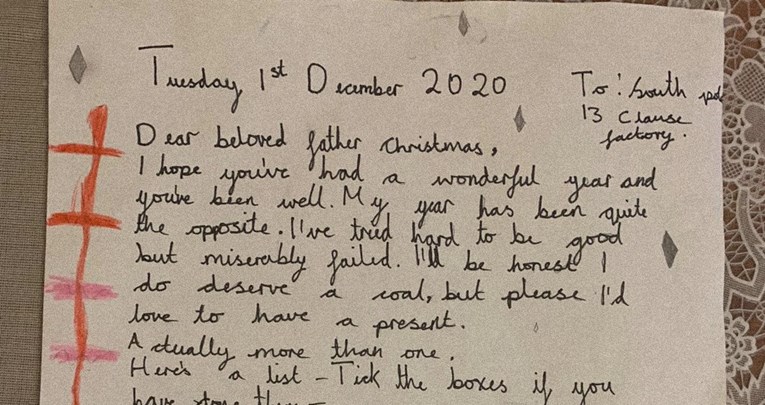 Tuesday 1st December 2020
To: South
13 Clause
factory.
Dear beloved father Christmas,
I hope you've had a wonderful year and
you've been well. My year has been quite
the opposite. I've tried hard to be good
but miserably failed. I'll be honest I
do deserve a coal, but please I'd
love to have a present.
Actually more than one.
Here's a list - Tick the boxes if you
have